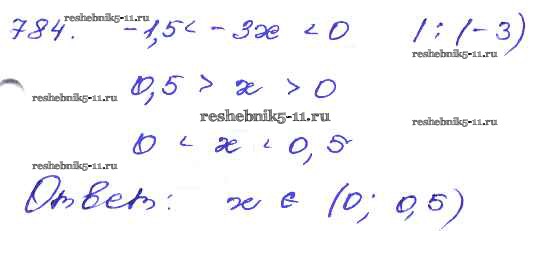 reshebnik5-11.ru
784. -1,5 < -3x < 0 | : (-3)
reshebnik5-11.ru
0,5 > x > 0
reshebnik5-11.ru
reshebnik5-11.ru
reshebnik5-11.ru
0 < x < 0,5
reshebnik5-11.ru
Ответ: x ∈ (0; 0,5)